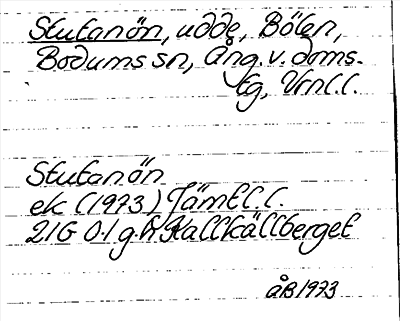 Stutanön, udde, Bölen,
Bodums sn, Ång. v. doms.
tg, Vrnl.l.
Stutanön
ek (1973) Jämtl.l.
21G 0-1 g.h Kallkällberget
ÅB 1973